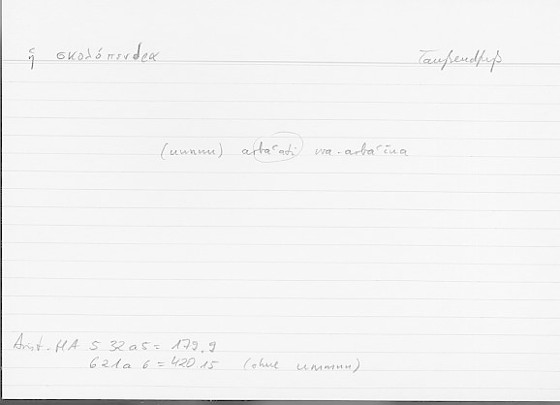 ἡ σκολόπενδρα Taußendfuß
(ummu) arbaʿati wa-arbaʿīna
Arist. HA 5 32a5 = 179,9
621a 6 = 420 15 (ohne ummu)